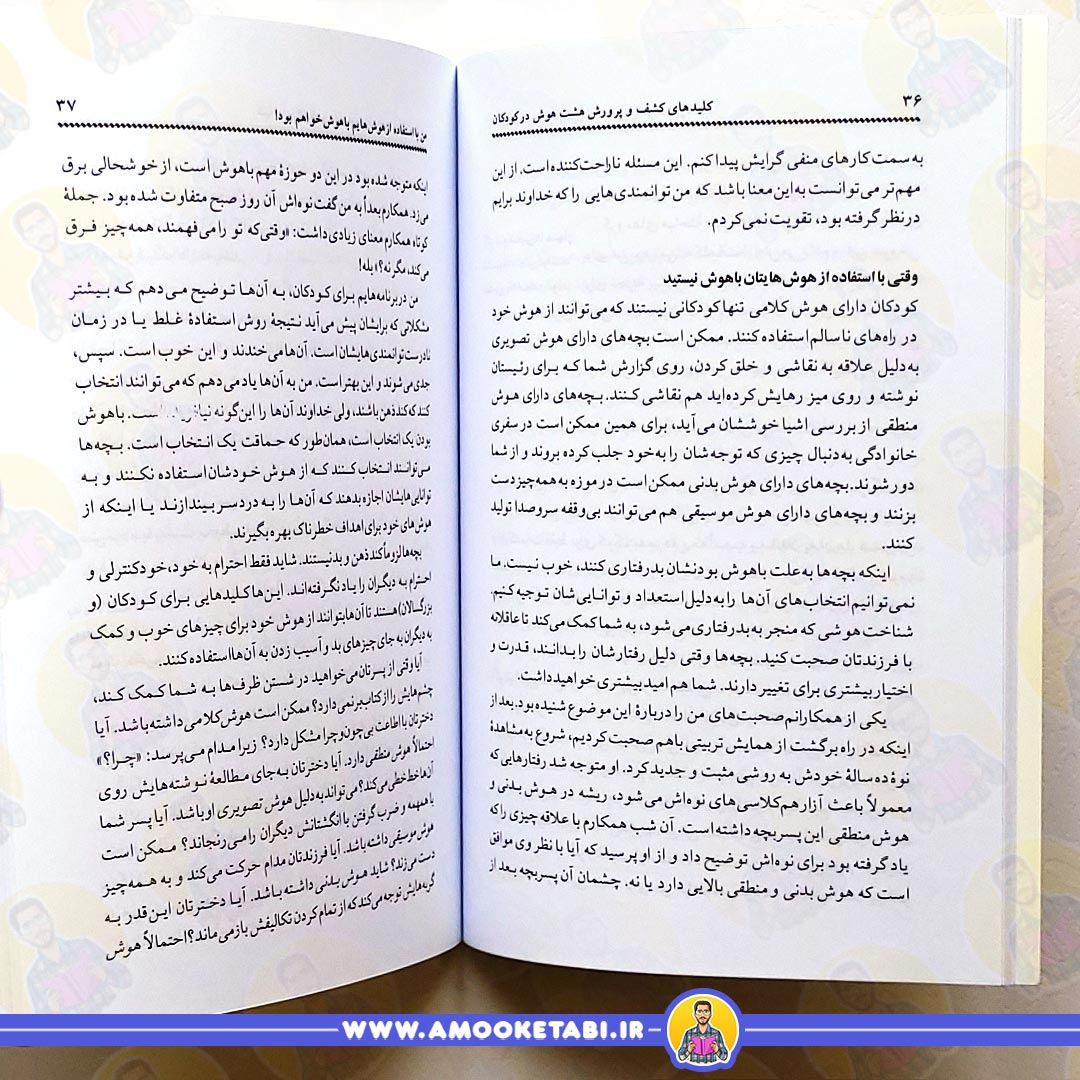 ۳۶
کلیدهای کشف و پرورش هشت هوش در کودکان
به سمت کارهای منفی گرایش پیدا کنم. این مسئله ناراحت‌کننده است. از این
مهم‌تر می‌توانست به‌این معنا باشد که من توانمندی‌هایی را که خداوند برایم
درنظر گرفته بود، تقویت نمی‌کردم.
وقتی با استفاده از هوش‌هایتان باهوش نیستید
کودکان دارای هوش کلامی تنها کودکانی نیستند که می‌توانند از هوش خود
در راه‌های ناسالم استفاده کنند. ممکن است بچه‌های دارای هوش تصویری
به‌دلیل علاقه به نقاشی و خلق کردن، روی گزارش شما که برای رئیستان
نوشته و روی میز رهایش کرده‌اید هم نقاشی کنند. بچه‌های دارای هوش
منطقی از بررسی اشیا خوششان می‌آید، برای همین ممکن است در سفری
خانوادگی به‌دنبال چیزی که توجه‌شان را به‌خود جلب کرده بروند و از شما
دور شوند. بچه‌های دارای هوش بدنی ممکن است در موزه به همه‌چیز دست
بزنند و بچه‌های دارای هوش موسیقی هم می‌توانند بی‌وقفه سروصدا تولید
کنند.
اینکه بچه‌ها به‌علت باهوش بودنشان بدرفتاری کنند، خوب نیست. ما
نمی‌توانیم انتخاب‌های آن‌ها را به‌دلیل استعداد و توانایی‌شان توجیه کنیم.
شناخت هوشی که منجر به بدرفتاری می‌شود، به شما کمک می‌کند تا عاقلانه
با فرزندتان صحبت کنید. بچه‌ها وقتی دلیل رفتارشان را بدانند، قدرت و
اختیار بیشتری برای تغییر دارند. شما هم امید بیشتری خواهید داشت.
یکی از همکارانم صحبت‌های من را دربارهٔ این موضوع شنیده بود. بعد از
اینکه در راه برگشت از همایش تربیتی باهم صحبت کردیم، شروع به مشاهدهٔ
نوهٔ ده سالهٔ خودش به روشی مثبت و جدید کرد. او متوجه شد رفتارهایی که
معمولاً باعث آزار هم‌کلاسی‌های نوه‌اش می‌شود، ریشه در هوش بدنی و
هوش منطقی این پسربچه داشته است. آن شب همکارم با علاقه چیزی را که
یاد گرفته بود برای نوه‌اش توضیح داد و از او پرسید که آیا با نظر وی موافق
است که هوش بدنی و منطقی بالایی دارد یا نه. چشمان آن پسربچه بعد از
۳۷
من با استفاده از هوش‌هایم باهوش خواهم بود!
اینکه متوجه شده بود در این دو حوزهٔ مهم باهوش است، از خوشحالی برق
می‌زد. همکارم بعداً به من گفت نوه‌اش آن روز صبح متفاوت شده بود. جملهٔ
کوتاه همکارم معنای زیادی داشت: «وقتی‌که تو را می‌فهمند، همه‌چیز فرق
می‌کند، مگر نه؟» بله!
من در برنامه‌هایم برای کودکان، به آن‌ها توضیح می‌دهم که بیشتر
مشکلاتی که برایشان پیش می‌آید نتیجهٔ روش استفادهٔ غلط یا در زمان
نادرست توانمندی‌هایشان است. آن‌ها می‌خندند و این خوب است. سپس،
جدی می‌شوند و این بهتر است. من به آن‌ها یاد می‌دهم که می‌توانند انتخاب
کنند که کندذهن باشند، ولی خداوند آن‌ها را این‌گونه است. باهوش
بودن یک انتخاب است، همان‌طور که حماقت یک انتخاب است. بچه‌ها
می‌توانند انتخاب کنند که از هوش خودشان استفاده نکنند و به
توانایی‌هایشان اجازه بدهند که آن‌ها را به دردسر بیندازند یا اینکه از
هوش‌های خود برای اهداف خطرناک بهره بگیرند.
بچه‌ها لزوماً کندذهن و بد نیستند. شاید فقط احترام به خود، خودکنترلی و
احترام به دیگران را یاد نگرفته‌اند. این‌ها کلیدهایی برای کودکان (و
بزرگسالان) هستند تا آن‌ها بتوانند از هوش خود برای چیزهای خوب و کمک
به دیگران به جای چیزهای بد و آسیب زدن به آن‌ها استفاده کنند.
آیا وقتی از پسرتان می‌خواهید در شستن ظرف‌ها به شما کمک کند،
چشم‌هایش را از کتاب برنمی‌دارد؟ ممکن است هوش کلامی داشته باشد. آیا
دخترتان با اطاعت بی‌چون‌وچرا مشکل دارد؟ زیرا مدام می‌پرسد: «چرا؟»
احتمالاً هوش منطقی دارد. آیا دخترتان به‌جای مطالعهٔ نوشته‌هایش روی
آن‌ها خط‌خطی می‌کند؟ می‌تواند به‌دلیل هوش تصویری او باشد. آیا پسر شما
با همهمه و ضرب گرفتن با انگشتانش دیگران را می‌رنجاند؟ ممکن است
هوش موسیقی داشته باشد. آیا فرزندتان مدام حرکت می‌کند و به همه‌چیز
دست می‌زند؟ شاید هوش بدنی داشته باشد. آیا دخترتان این‌قدر به
گربه‌هایش توجه می‌کند که از تمام کردن تکالیفش بازمی‌ماند؟ احتمالاً هوش
WWW.AMOOKETABI.IR